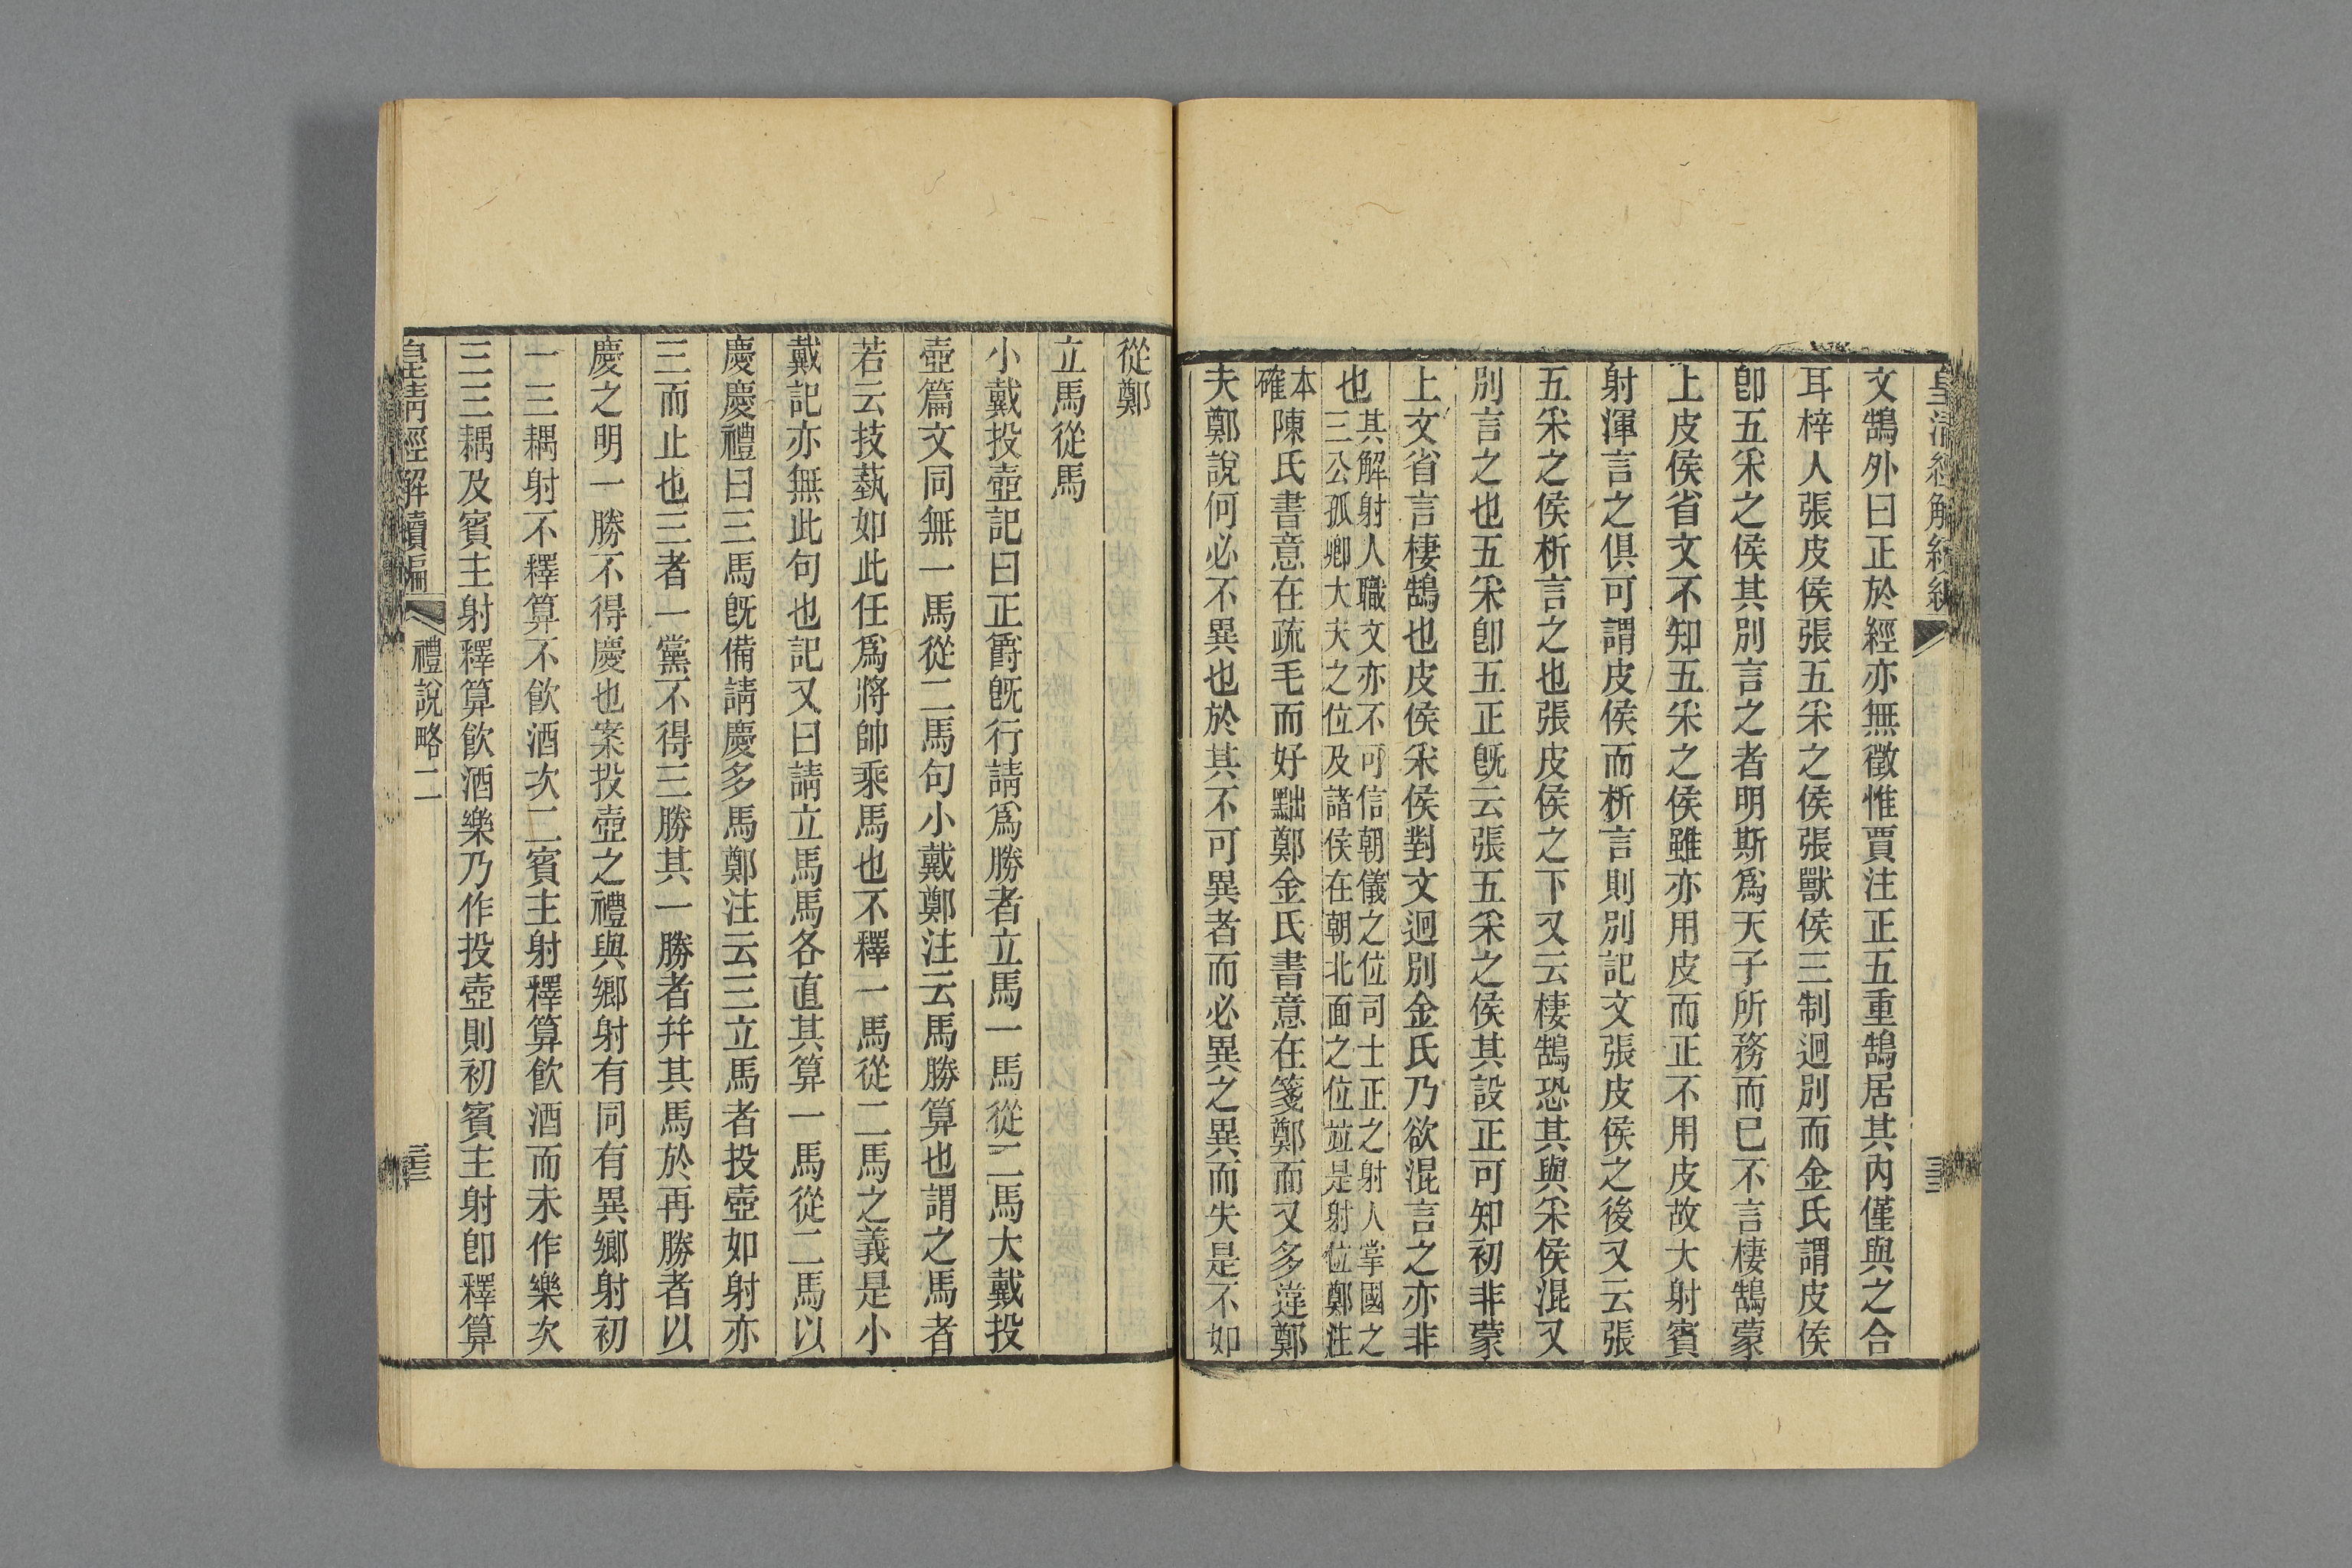 皇清經解續編
三三
文鵠外曰正於經亦無徵惟賈注正五重鵠居其內僅與之合
耳梓人張皮侯張五采之侯張獸侯三制迥別而金氏謂皮侯
卽五采之侯其別言之者明斯爲天子所務而已不言棲鵠蒙
上皮侯省文不知五采之侯雖亦用皮而正不用皮故大射賓
射渾言之俱可謂皮侯而析言則別記文張皮侯之後又云張
五采之侯析言之也張皮侯之下又云棲鵠恐其與采侯混又
別言之也五采卽五正旣云張五采之侯其設正可知初非蒙
上文省言棲鵠也皮侯采侯對文迥別金氏乃欲混言之亦非
也其解射人職文亦不可信朝儀之位司士正之射人掌國之
三公孤卿大夫之位及諸侯在朝北面之位竝是射位鄭注
本確陳氏書意在疏毛而好黜鄭金氏書意在箋鄭而又多違鄭
夫鄭說何必不異也於其不可異者而必異之異而失是不如
從鄭
立馬從馬
小戴投壺記曰正爵旣行請爲勝者立馬一馬從二馬大戴投
壺篇文同無一馬從二馬句小戴鄭注云馬勝算也謂之馬者
若云技藝如此任爲將帥乘馬也不釋一馬從二馬之義是小
戴記亦無此句也記又曰請立馬馬各直其算一馬從二馬以
慶慶禮曰三馬旣備請慶多馬鄭注云三立馬者投壺如射亦
三而止也三者一黨不得三勝其一勝者幷其馬於再勝者以
慶之明一勝不得慶也案投壺之禮與鄉射有同有異鄉射初
一三耦射不釋算不飮酒次二賓主射釋算飮酒而未作樂次
三三耦及賓主射釋算飮酒樂乃作投壺則初賓主射卽釋算
皇清經解續編
禮說略二
三三